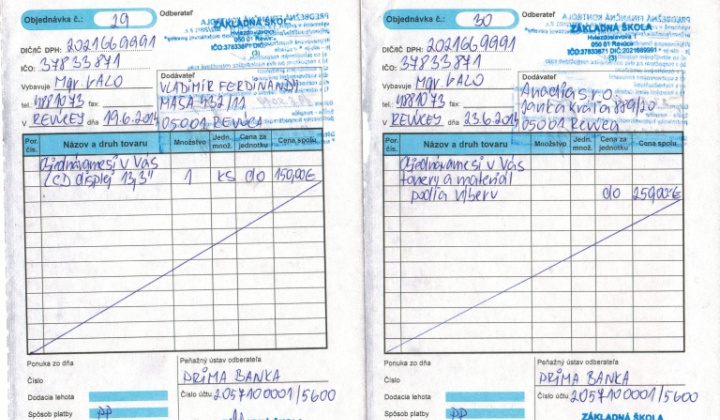 Objednávka č.: 29
Odberateľ
ZÁKLADNÁ ŠKOLA
Hviezdoslavova
050 01 Revúca
IČO:37833871 DIČ:
(3)
DIČ/IČ DPH: 2021669991
IČO: 37833871
Vybavuje Mgr VALO
tel. 4881073 fax
V REVÚCEJ dňa 19.6.2014
Dodávateľ
VLADIMÍR FERDINANDY
MASA 432/11
05001 REVÚCA
Por. čís.
Názov a druh tovaru
Množstvo
Jedn. množ.
Cena za jednotku
Cena spolu
Objednávame si v Vás
LCD displej 13,3" 1 ks do 159,00€
Ponuka zo dňa
Číslo
Dodacia lehota
Spôsob platby PP
Peňažný ústav odberateľa
PRIMA BANKA
Číslo účtu 2057100001/5600
ZÁKLADNÁ ŠKOLA
Objednávka č.: 30
Odberateľ
ZÁKLADNÁ ŠKOLA
Hviezdoslavova
050 01 Revúca
IČO:37833871 DIČ:2021669991
(3)
DIČ/IČ DPH: 2021669991
IČO: 37833871
Vybavuje Mgr VALO
tel. 4881073 fax
V REVÚCEJ dňa 23.6.2014
Dodávateľ
Anadia s.r.o.
Janka Kráľa 889/20
05001 Revúca
Por. čís.
Názov a druh tovaru
Množstvo
Jedn. množ.
Cena za jednotku
Cena spolu
Objednávame si v Vás
tonery a materiál
podľa výberu do 259,00€
Ponuka zo dňa
Číslo
Dodacia lehota
Spôsob platby PP
Peňažný ústav odberateľa
PRIMA BANKA
Číslo účtu 2057100001/5600
ZÁKLADNÁ ŠKOLA